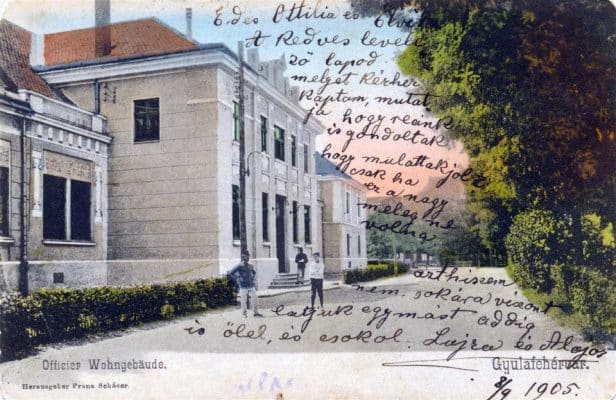 Édes Ottilia és Elvira
A kedves levele
ző lapod
melyet Kérher
Kaptam, mutat
ja hogy reánk
is gondoltak
hogy mulattak jol?
csak ha
ez a nagy
meleg ne
volna
azt hiszem
nem sokára viszont
látjuk egymást addig
is ölel, és csokol. Lujza és Alajos
Officier Wohngebäude.
Gyulafehérvár.
8/9 1905.
Herausgeber Franz Schäser.